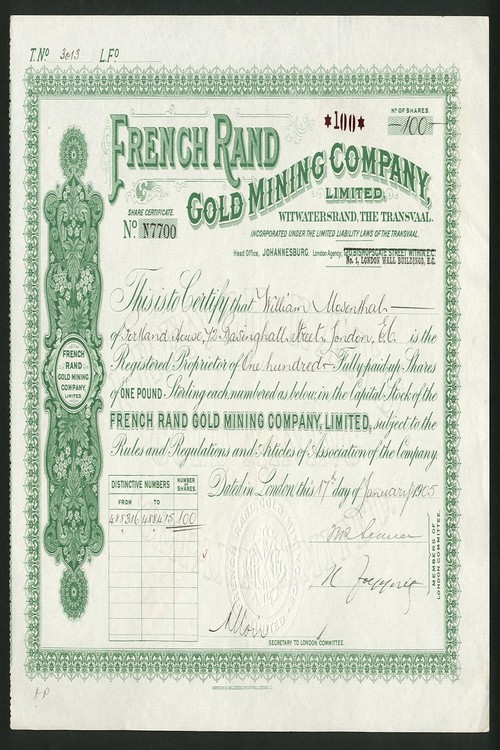 T. No 3013 L.Fo
No OF SHARES.
*100* -100-
FRENCH RAND
GOLD MINING COMPANY,
LIMITED,
SHARE CERTIFICATE.
No N7700
WITWATERSRAND, THE TRANSVAAL.
INCORPORATED UNDER THE LIMITED LIABILITY LAWS OF THE TRANSVAAL.
Head Office, JOHANNESBURG. London Agency, 120, BISHOPSGATE STREET WITHIN E.C.
No. 1, LONDON WALL BUILDINGS, E.C.
This is to Certify that William Mosenthal
of Portland House, 72 Basinghall Street, London, E.C. is the
Registered Proprietor of One hundred Fully paid up Shares
of ONE POUND Sterling each, numbered as below, in the Capital Stock of the
FRENCH RAND GOLD MINING COMPANY, LIMITED, subject to the
Rules and Regulations and Articles of Association of the Company.
FRENCH
RAND
GOLD MINING
COMPANY,
LIMITED.
Dated in London this 17th day of January 1905
DISTINCTIVE NUMBERS NUMBER OF SHARES.
FROM TO
488316 488415 100
MEMBERS OF
LONDON COMMITTEE.
SECRETARY TO LONDON COMMITTEE.